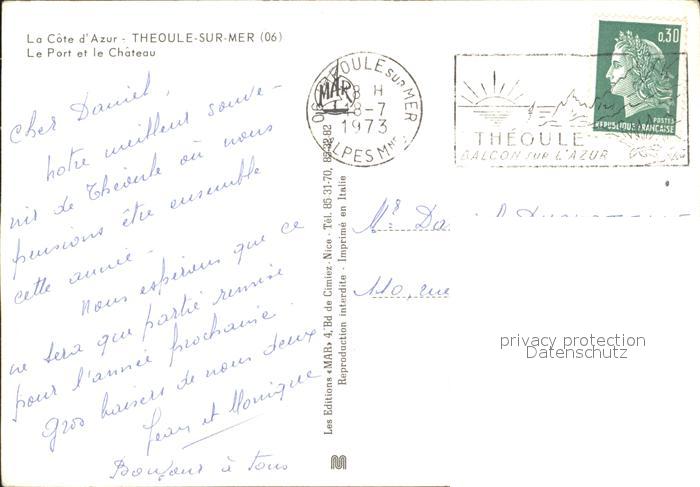 La Côte d'Azur - THEOULE-SUR-MER (06)
Le Port et le Château
Cher Daniel,
notre meilleur souve-
nir de Théoule où nous
pensions être ensemble
cette année.
Nous espérons que ce
ne sera que partie remise
pour l'année prochaine.
Gros baisers de nous deux
Jean et Monique
Bonjour à tous
Les Editions «MAR» 4, Bd de Cimiez - Nice - Tél. 85-31-70, 88-32-82
Reproduction interdite - Imprimé en Italie
MAR
THEOULE SUR MER
18 H
18-7
1973
ALPES MMES
THÉOULE
BALCON SUR L'AZUR
0,30
POSTES
REPUBLIQUE FRANCAISE
Mr
110, rue
privacy protection
Datenschutz